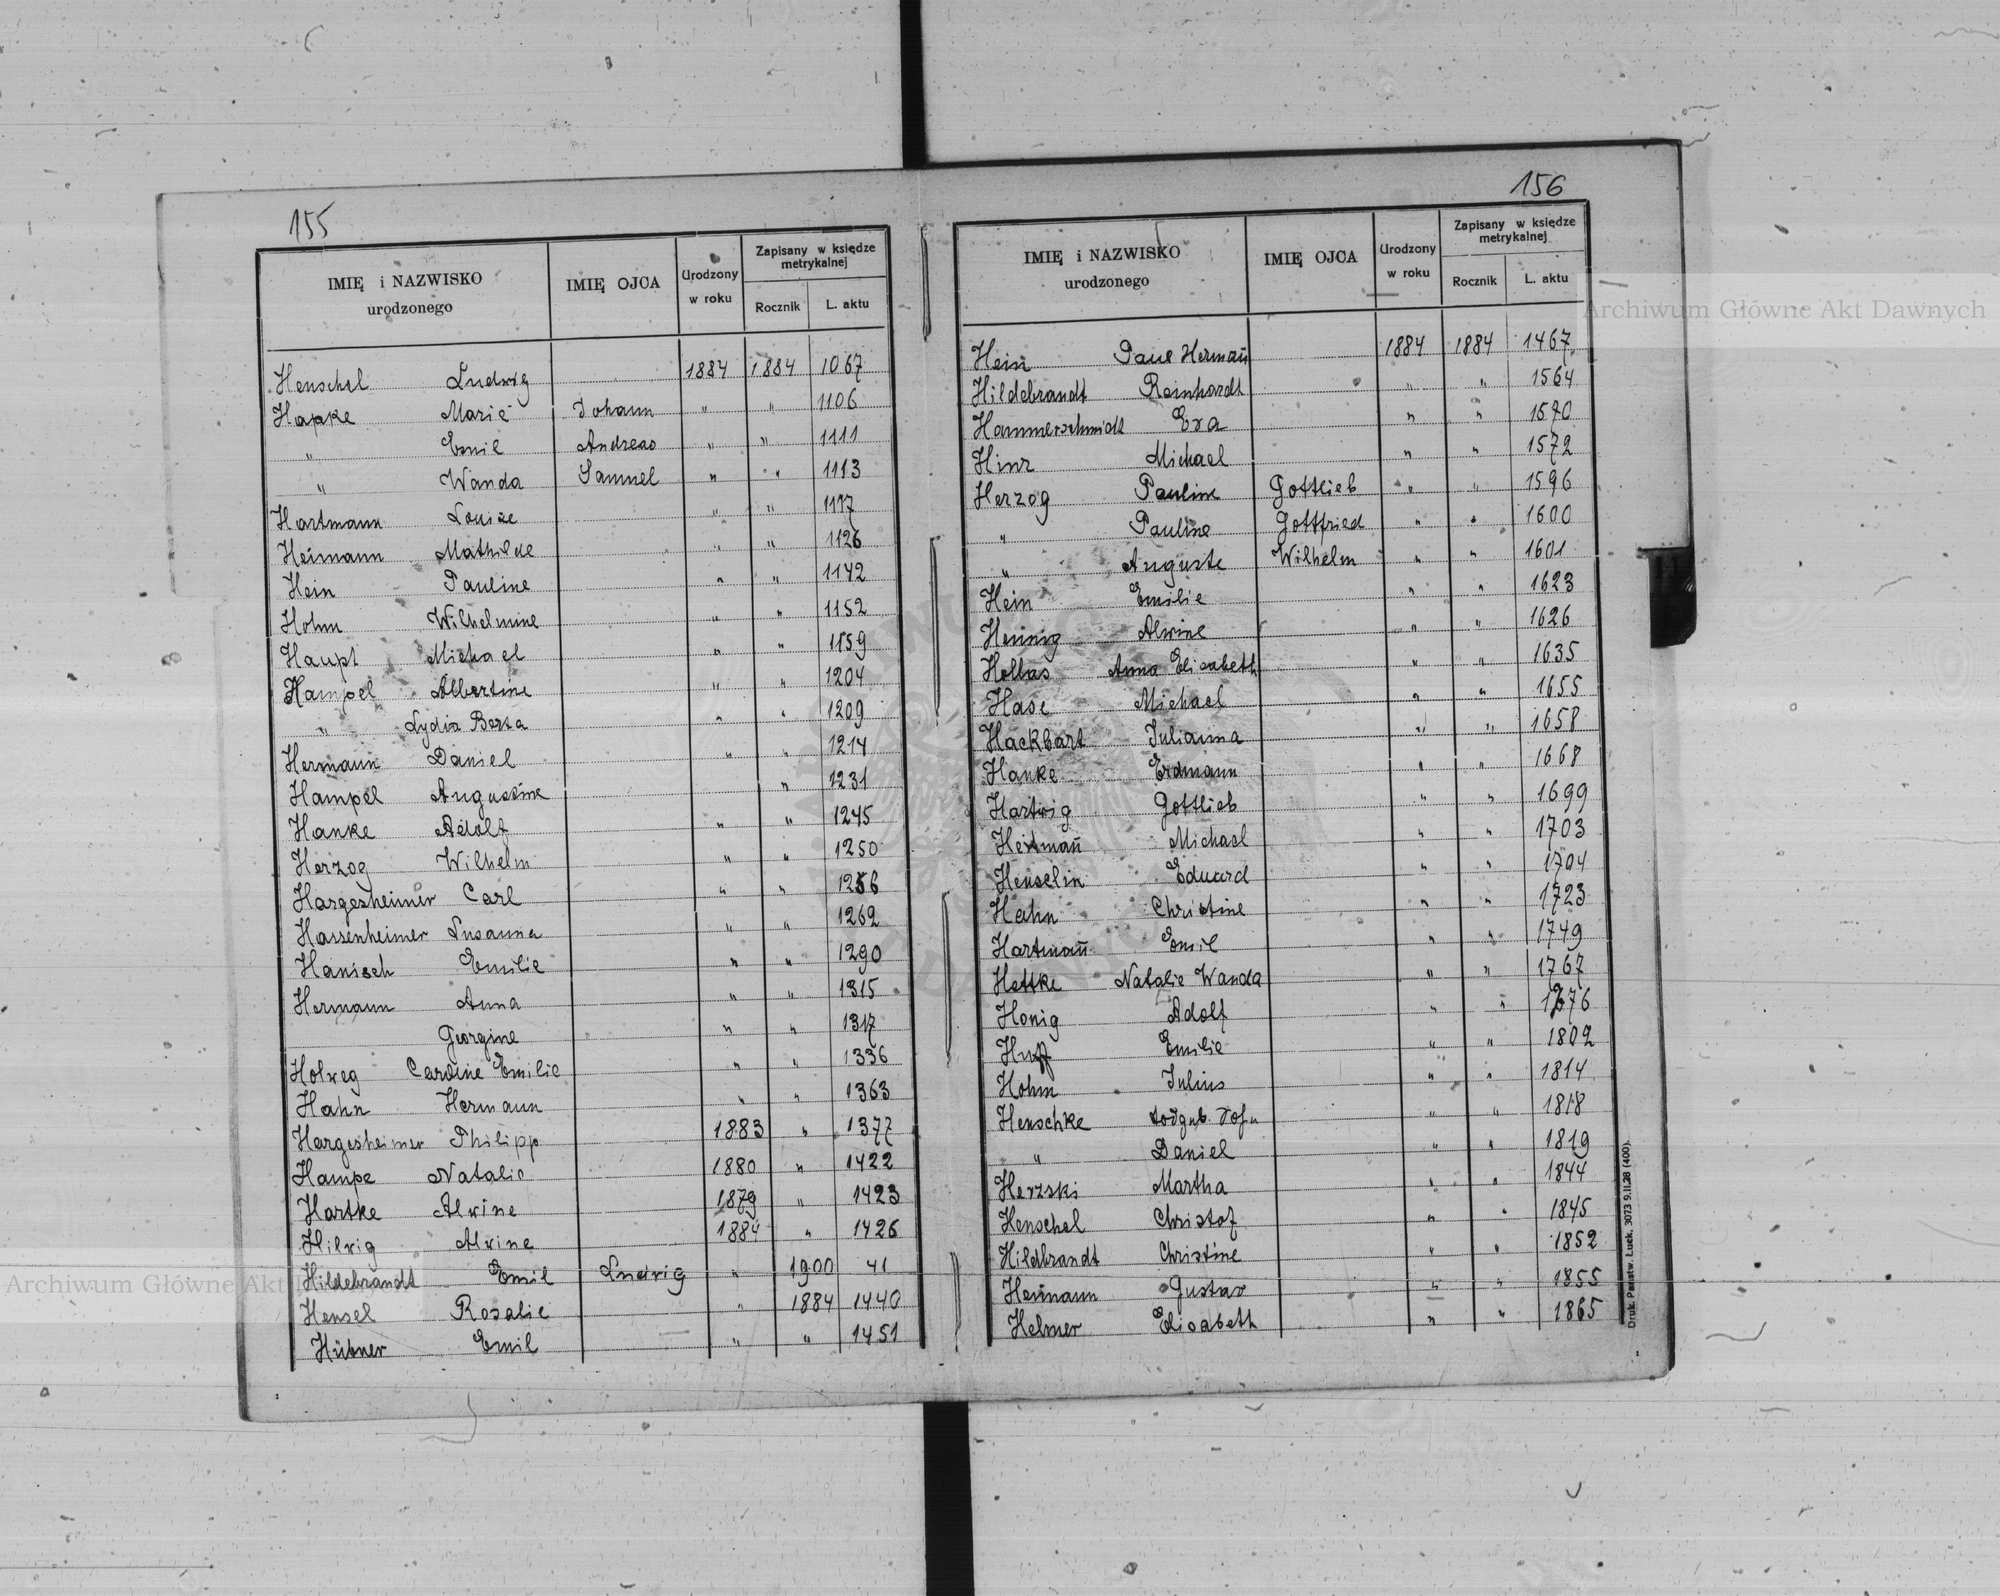 155
IMIĘ i NAZWISKO urodzonego IMIĘ OJCA Urodzony w roku Zapisany w księdze metrykalnej Rocznik L. aktu
Henschel Ludwig 1884 1884 1067
Hapke Marie Johann " " 1106
" Emil Andreas " " 1111
" Wanda Samuel " " 1113
Hartmann Louise " " 1117
Heimann Mathilde " " 1126
Hein Pauline " " 1142
Hohm Wilhelmine " " 1152
Haupt Michael " " 1159
Hampel Albertine " " 1204
" Lydia Berta " " 1209
Hermann Daniel " " 1214
Hampel Augustine " 1231
Hanke Adolf " " 1245
Herzog Wilhelm " " 1250
Hargesheimer Carl " " 1256
Hassenheimer Susanna " " 1262
Hanisch Emilie " " 1290
Hermann Anna " " 1315
Georgine " " 1317
Holweg Caroline Emilie " " 1336
Hahn Hermann " " 1363
Hargesheimer Philipp 1883 " 1377
Hampe Natalie 1880 " 1422
Hartke Alwine 1879 " 1423
Hilwig Alwine 1884 " 1426
Hildebrandt Emil Ludwig " 1900 41
Hensel Rosalie " 1884 1440
Hübner Emil " " 1451
156
IMIĘ i NAZWISKO urodzonego IMIĘ OJCA Urodzony w roku Zapisany w księdze metrykalnej Rocznik L. aktu
Hein Paul Hermañ 1884 1884 1467
Hildebrandt Reinhardt " " 1564
Hammerschmidt Eva " " 1570
Hinz Michael " " 1572
Herzog Pauline Gottlieb " " 1596
" Pauline Gottfried " " 1600
" Auguste Wilhelm " " 1601
Hein Emilie " " 1623
Hennig Alwine " " 1626
Hellas Anna Elisabeth " " 1635
Hase Michael " " 1655
Hackbart Julianna " " 1658
Hanke Erdmann " " 1668
Hartwig Gottlieb " " 1699
Heitmañ Michael " " 1703
Henselin Eduard " " 1704
Hahn Christine " " 1723
Hartmañ Emil " " 1749
Hettke Natalie Wanda " " 1767
Honig Adolf " "
Huff Emilie " " 1802
Hohm Julius " " 1814
Henschke " " 1818
" Daniel " " 1819
Herzski Martha " " 1844
Henschel Christof " " 1845
Hildbrandt Christine " " 1852
Heimann Gustav " " 1855
Helmer Elisabeth " " 1865
Druk. Państw. Łuck. 3073 9.11.28 (400).
Archiwum Główne Akt Dawnych
Archiwum Główne Akt Dawnych